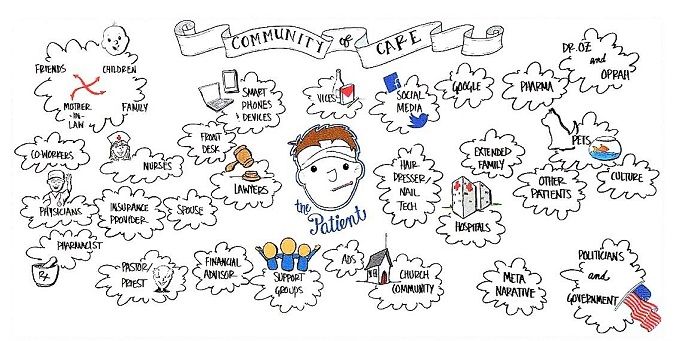 COMMUNITY of CARE
FRIENDS
CHILDREN
MOTHER
-IN-
LAW
FAMILY
SMART
PHONES
DEVICES
VICES
SOCIAL
MEDIA
GOOGLE
PHARMA
DR. OZ
and
OPRAH
CO-WORKERS
NURSES
FRONT
DESK
LAWYERS
HAIR
DRESSER/
NAIL
TECH
EXTENDED
FAMILY
PETS
OTHER
PATIENTS
CULTURE
PHYSICIANS
INSURANCE
PROVIDER
SPOUSE
the
Patient
HOSPITALS
PHARMACIST
Rx
PASTOR/
PRIEST
FINANCIAL
ADVISOR
SUPPORT
GROUPS
ADS
CHURCH
COMMUNITY
META
NARATIVE
POLITICIANS
and
GOVERNMENT